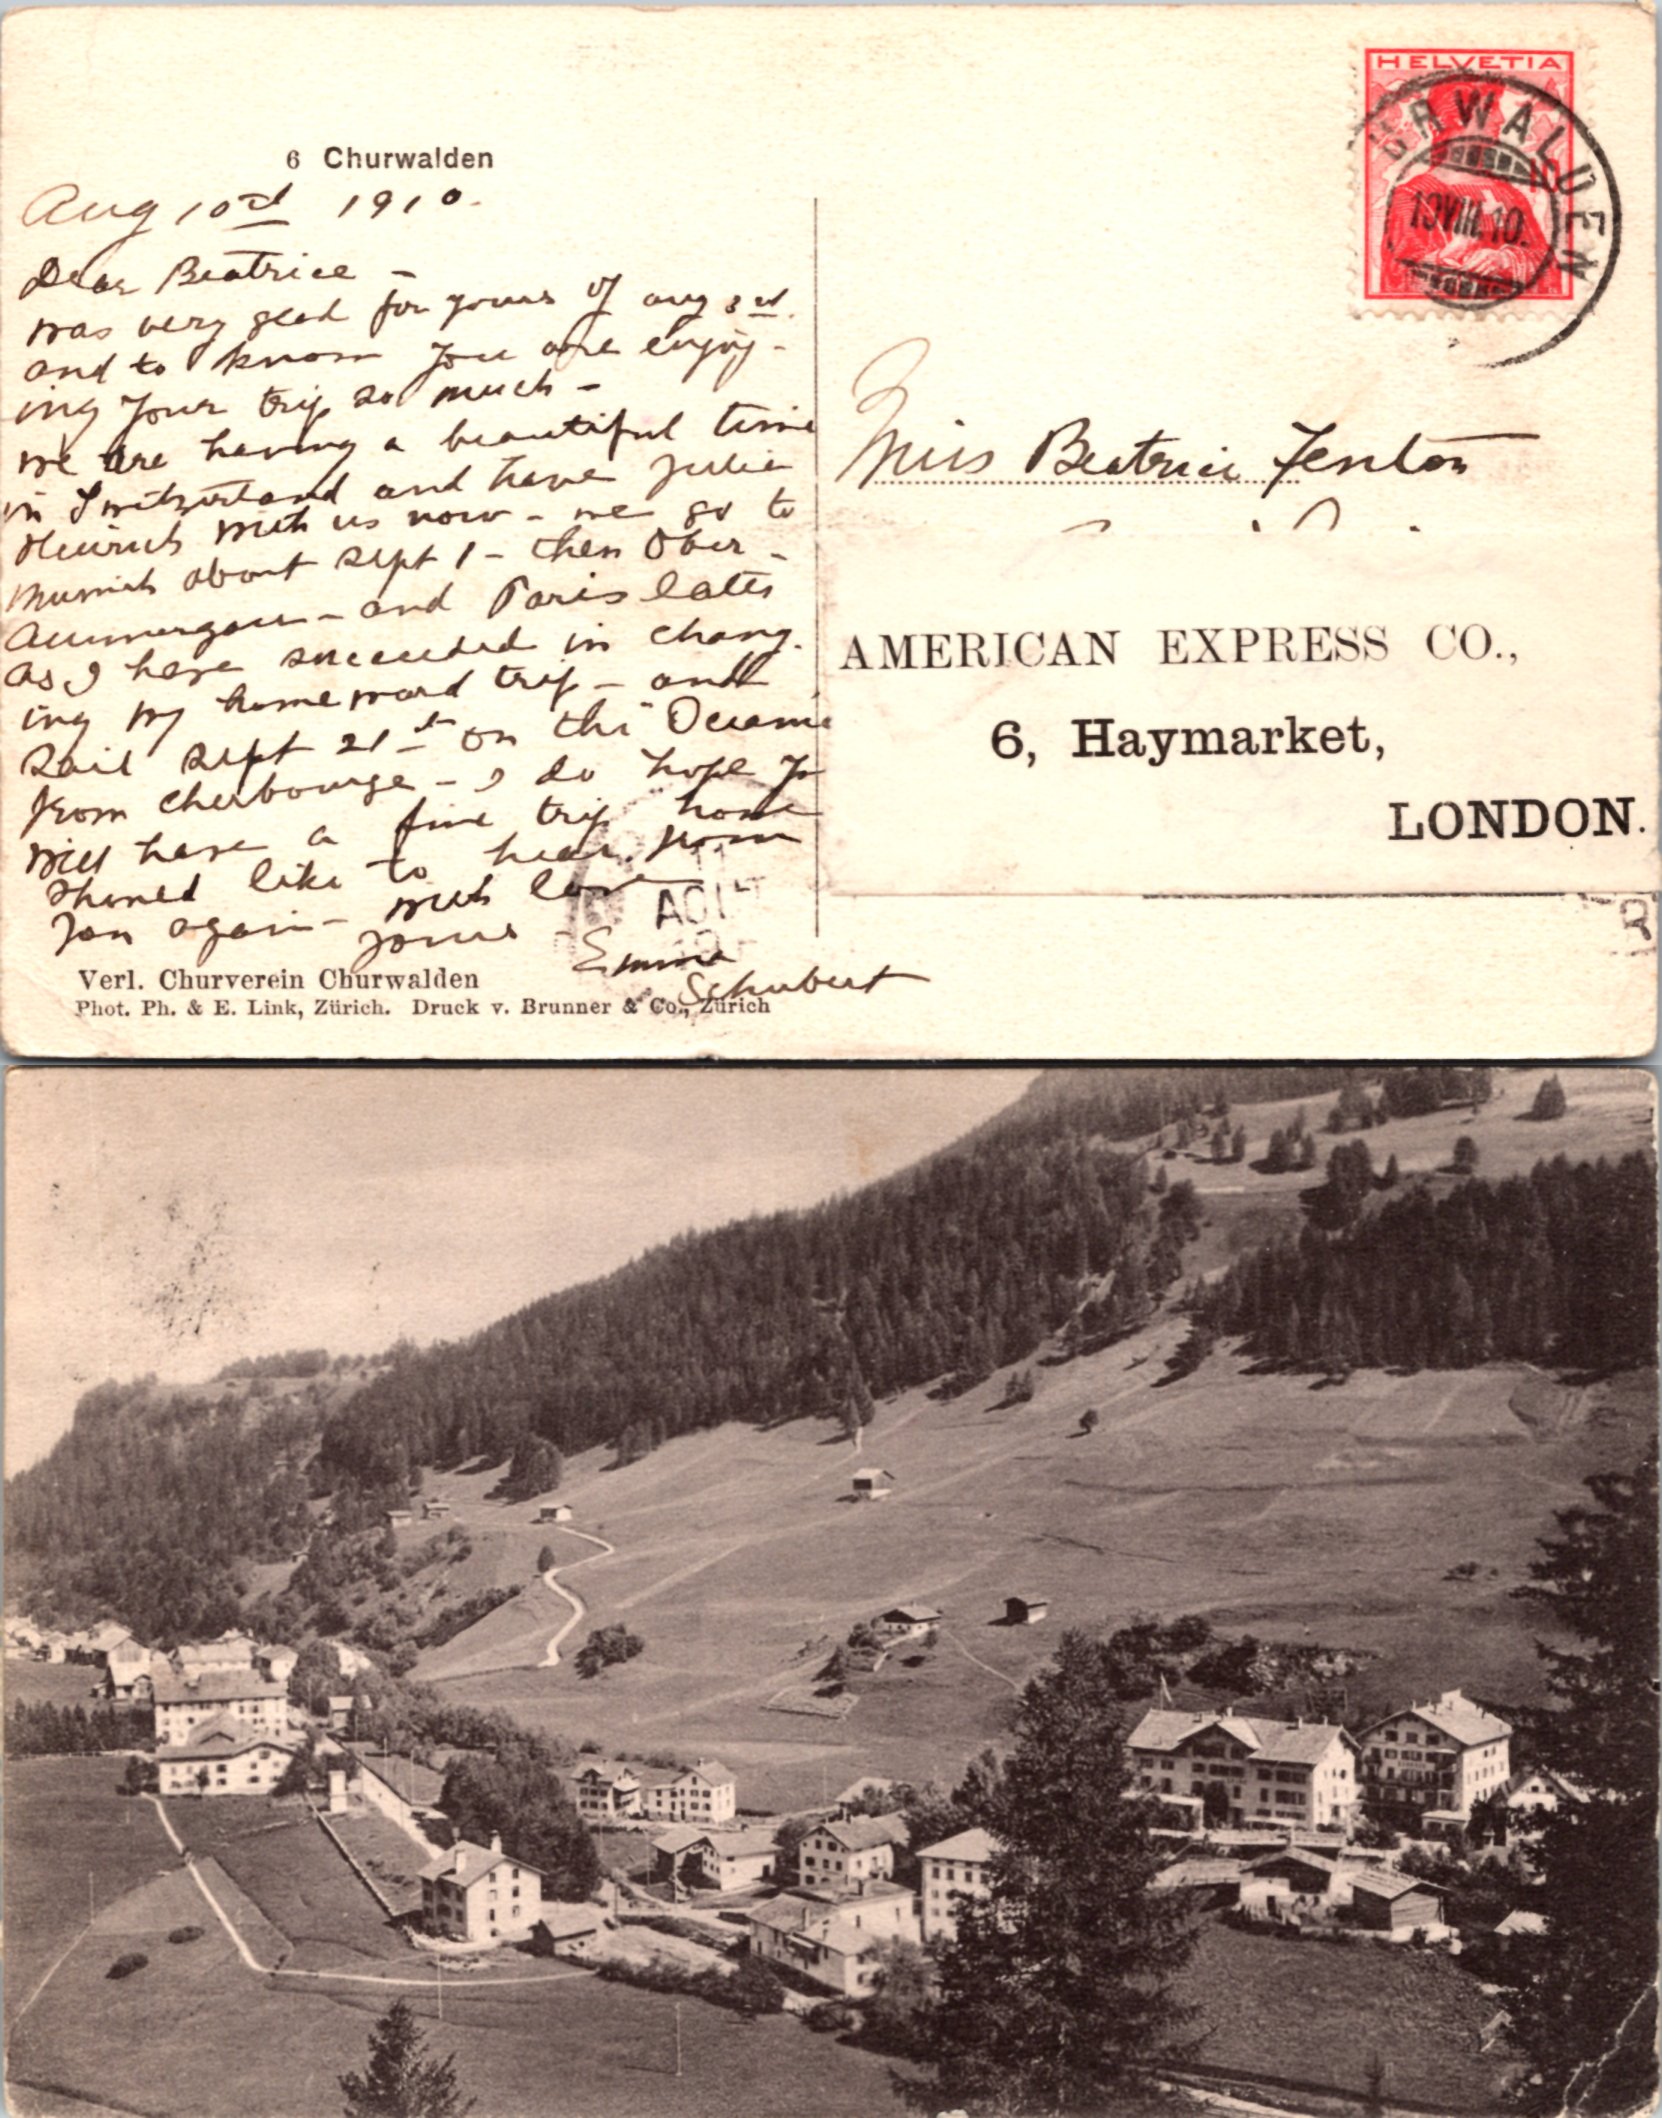 6 Churwalden
Aug 10rd 1910.
Dear Beatrice -
was very glad for yours of aug 3rd.
and to know you are enjoy-
ing your trip so much -
we are having a beautiful time
in Switzerland and have Julie
with us now - we go to
Munich about Sept 1 - then Ober-
Ammergau - and Paris later
as I have succeeded in chang-
ing my homeward trip - and
sail Sept 21st on the Oceanic
from Cherbourge - I do hope yo
will have a fine trip home
Should like to hear from
you again - with love
Yours Emma
Schubert
Verl. Churverein Churwalden
Phot. Ph. & E. Link, Zürich. Druck v. Brunner & Co., Zürich
HELVETIA
URWALDEN
10 VIII.10.
Miss Beatrice Fenton
AMERICAN EXPRESS CO.,
6, Haymarket,
LONDON.
11
AOUT